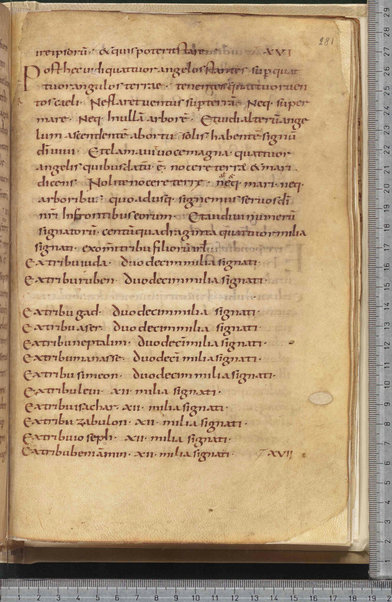 281
irę ipsorū · & quis poterit stare XVI
Post hec uidi quattuor angelos stantes sup quat
tuor angulos terrae · tenentes quattuor uen
tos caeli · Ne flaret uentus sup terrā · Neq super
mare · Neq in ullā arborē · Et uidi alterū ange
lum ascendente abortu solis habente signū
di uiui · Et clamauit uoce magna quattuor
angelis quibus datū ē nocere terrae & mari
dicens · Nolite nocere terre · neq mari · neq
arboribus quoadusq signemus seruos di
nri Infrontibus eorum · Et audiui numerū
signatorū centū quadraginta quattuor milia
signati · ex omi tribu filiorū isrl
Ex tribu iuda · duodecim milia signati ·
Ex tribu ruben · duodecim milia signati ·
Ex tribu gad · duodecim milia · signati ·
Ex tribu aser · duodecim milia signati
Ex tribu neptalim · duodecī milia signati ·
Ex tribu manasse · duodecī milia signati ·
Ex tribu simeon · duodecim milia signati ·
Ex tribu leui · XII · milia signati ·
Ex tribu isachar · XII · milia signati ·
Ex tribu zabulon · XII · milia signati ·
Ex tribu ioseph · XII · milia signati ·
Ex tribu beniamin · XII · milia signati · XVII